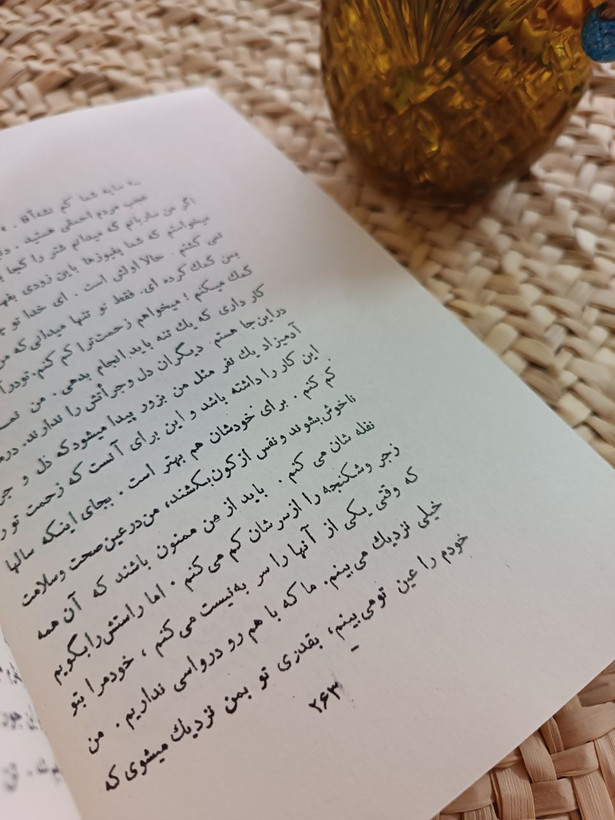 سایه شما کم
مردم احمقی هستید .
اگر من که میدانم را کجا
میخواستم که شما پفیوزها باین زودی
می کشتم . حالا اولش است . ای خدا تو
بمن کمک کرده ای. فقط تو تنها میدانی که
کمک میکنم ؛ میخواهم زحمت ترا کم کنم.
کار داری که یك تنه باید انجام بدهی . من
در این جا هستم . دیگران دل و جرأتش را ندارند.
آدمیزاد یك نفر مثل من بزور پیدا میشود که دل و
این کار را داشته باشد و این برای آنست که زحمت تو
کم کنم . برای خودشان هم بهتر است . بجای اینکه سالها
ناخوش بشوند و نفس از کون بکشند، من در عین صحت و سلامت
نفله شان می کنم . باید از من ممنون باشند که آن همه
زجر و شکنجه را از سرشان کم می کنم . اما راستش را بگویم
که وقتی یکی از آنها را سر به نیست می کنم ، خودم را بتو
خیلی نزدیك می بینم. ما که با هم رو درواسی نداریم . من
خودم را عین تو می بینم، بقدری تو بمن نزدیك میشوی که
۲۶۳